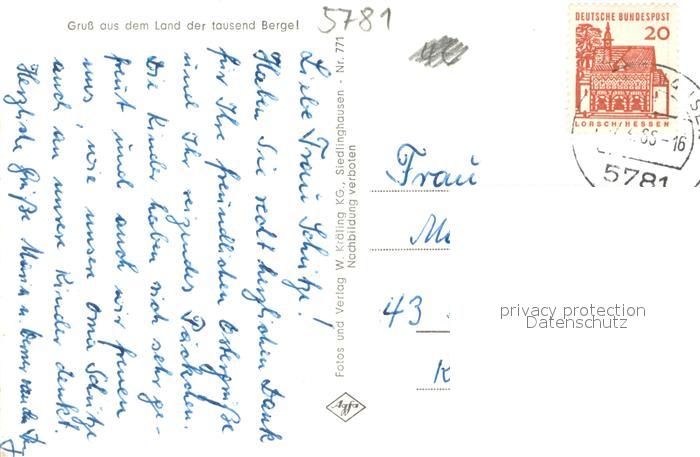 Gruß aus dem Land der tausend Berge!
5781
Liebe Frau Schütze!
Haben Sie recht herzlichen Dank
für Ihre freundlichen Ostergrüße
und Ihr reizendes Päckchen.
Die Kinder haben sich sehr ge-
freut und auch wir freuen
uns, wie unsere Omi Schütze
auch an unsere Kinder denkt.
Herzliche Grüße
Fotos und Verlag W. Kräling KG., Siedlinghausen - Nr. 771
Nachbildung verboten
Agfa
DEUTSCHE BUNDESPOST
20
LORSCH/HESSEN
65-16
5781
Frau
43
K
privacy protection
Datenschutz